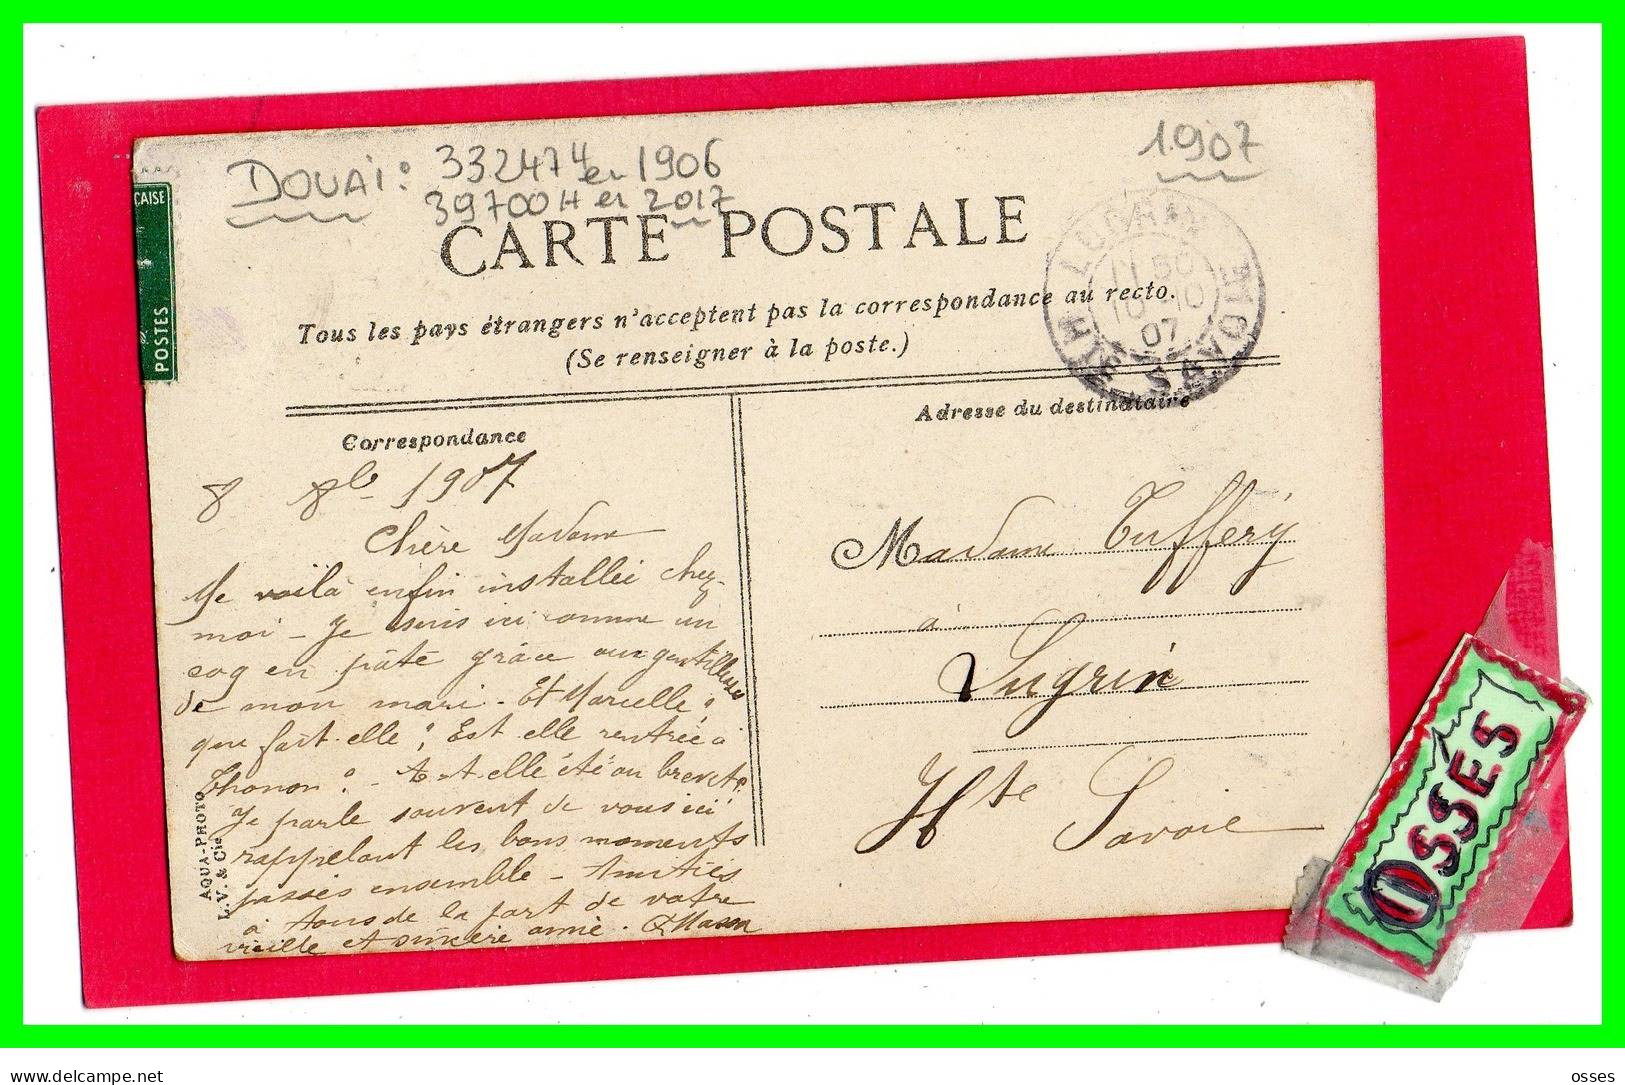 DOUAI : 33247 H en 1906
39700 H en 2017
1907
CAISE
POSTES
CARTE POSTALE
Tous les pays étrangers n'acceptent pas la correspondance au recto.
(Se renseigner à la poste.)
LUGRIN
11 50
10-10
07
HTE SAVOIE
Correspondance
Adresse du destinataire
8 8bre 1907
Chère Madame
Me voilà enfin installée chez
moi - Je suis ici comme un
coq en pâté grâce aux gentillesses
de mon mari - Et Marcelle ?
que fait-elle ? Est elle rentrée à
Thonon ? - A-t-elle été au brevet ?
Je parle souvent de vous ici
rappelant les bons moments
passés ensemble - Amitiés
à tous de la part de votre
vieille et sincère amie.
Madame Tuffery
à
Lugrin
Hte Savoie
AQUA-PHOTO
L. V. & Cie
OSSÉS
osses